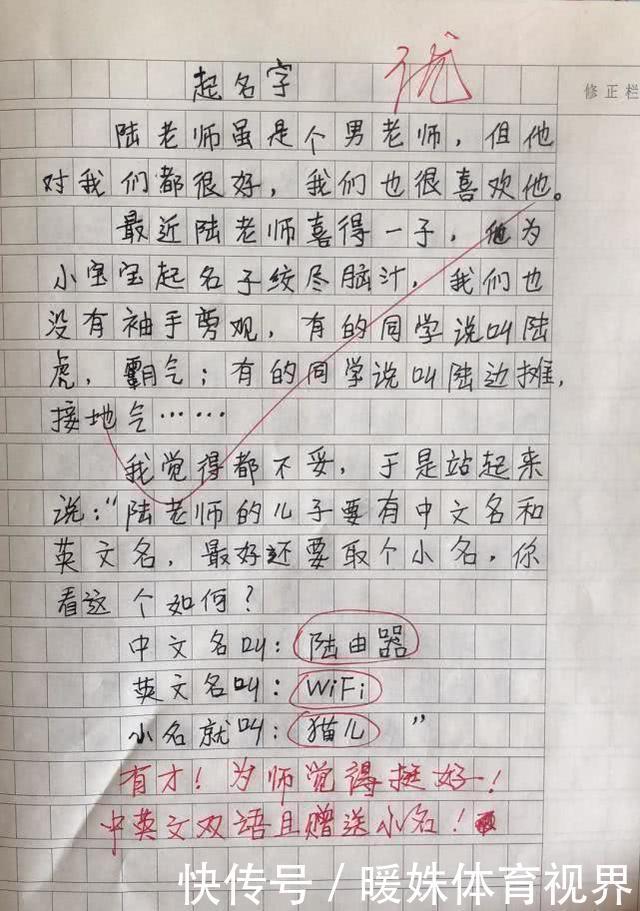 起名字 优
修正栏
陆老师虽是个男老师，但他
对我们都很好，我们也很喜欢他。
最近陆老师喜得一子，他为
小宝宝起名子绞尽脑汁，我们也
没有袖手剪观，有的同学说叫陆
虎，霸气；有的同学说叫陆边摊，
接地气……
我觉得都不妥，于是站起来
说：“陆老师的儿子要有中文名和
英文名，最好还要取个小名，你
看这个如何？
中文名叫：陆由器
英文名叫：WiFi
小名就叫：猫儿”
有才！为师觉得挺好！
中英文双语且赠送小名！
快传号/暖姝体育视界